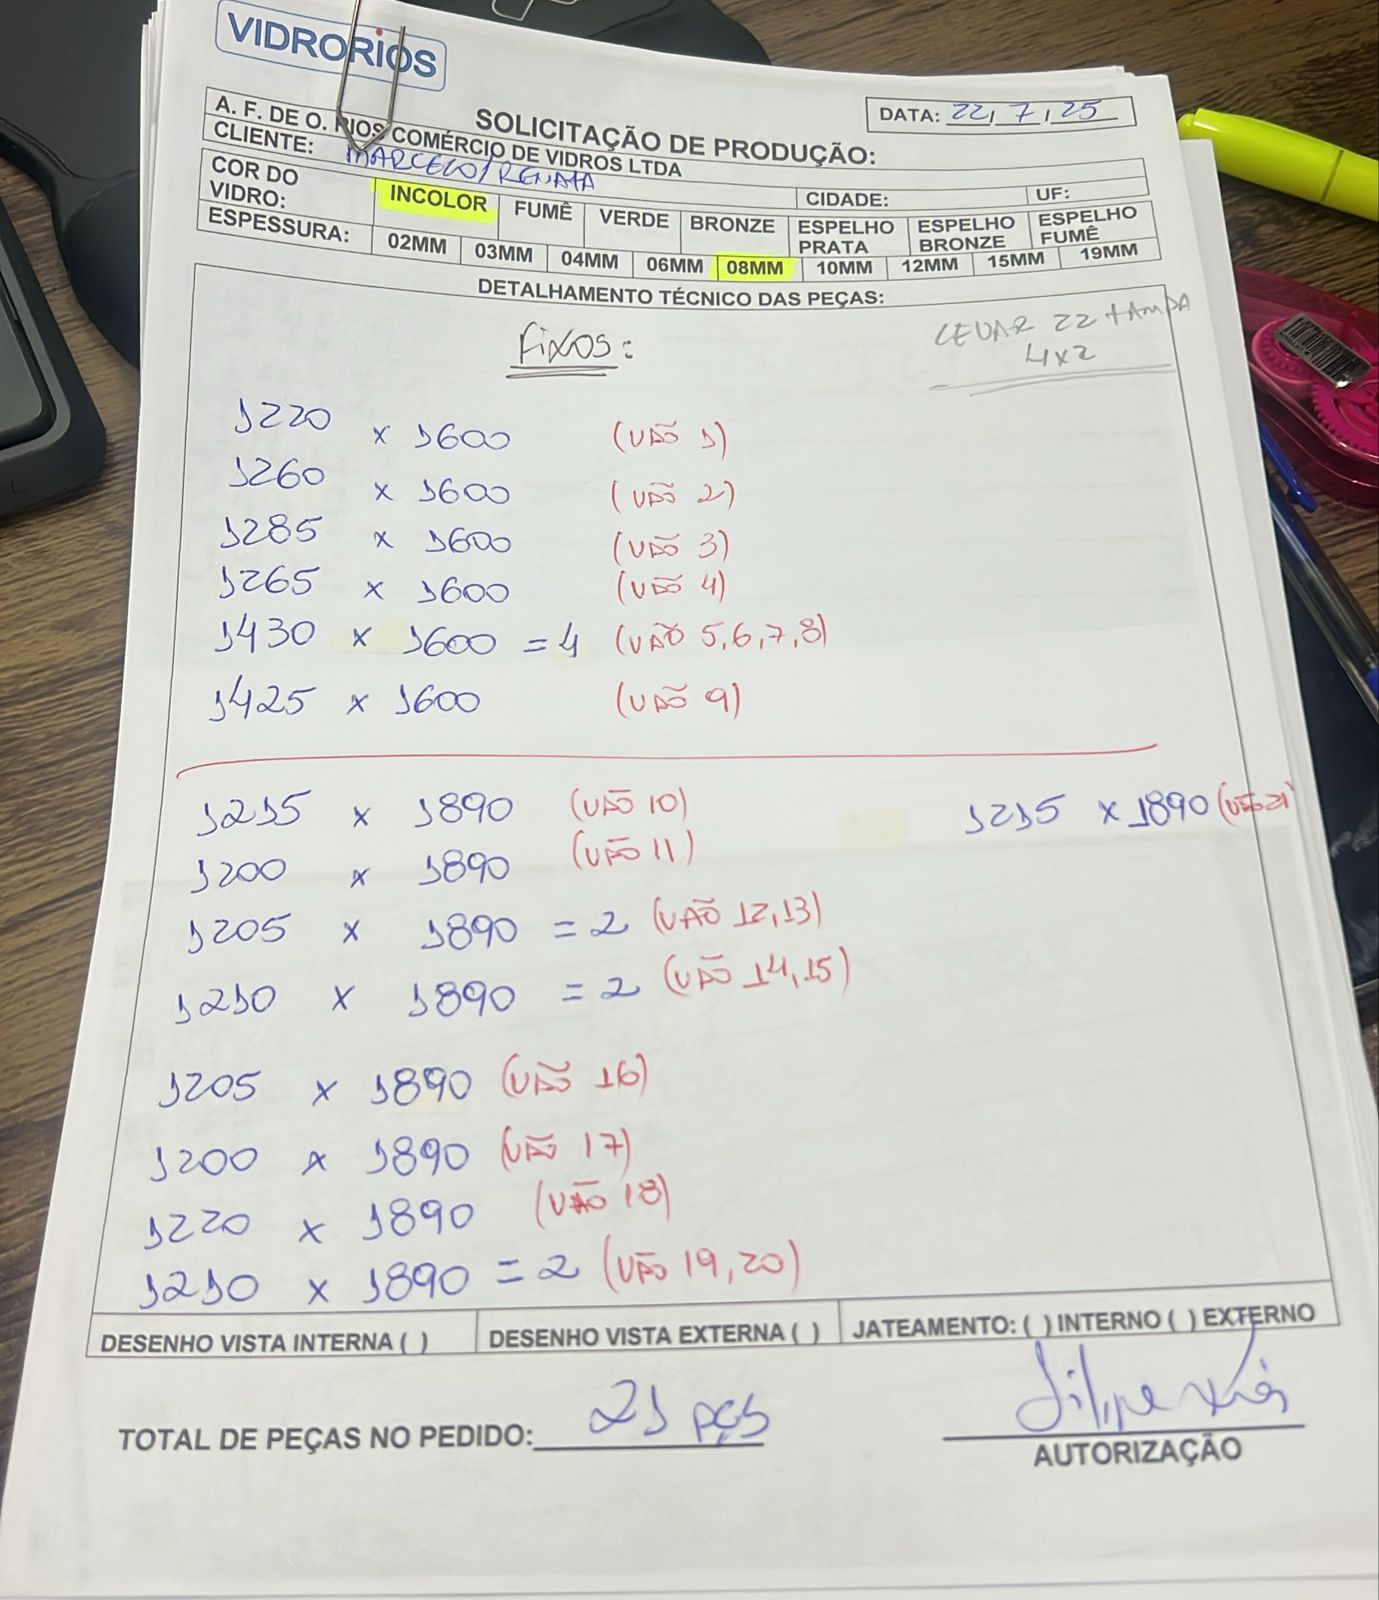 VIDRORIOS
SOLICITAÇÃO DE PRODUÇÃO:
DATA: 22, 7, 25
A. F. DE O. RIOS COMÉRCIO DE VIDROS LTDA
CLIENTE: MARCELO/RENATA
CIDADE: UF:
COR DO VIDRO: INCOLOR FUMÊ VERDE BRONZE ESPELHO PRATA ESPELHO BRONZE ESPELHO FUMÊ
ESPESSURA: 02MM 03MM 04MM 06MM 08MM 10MM 12MM 15MM 19MM
DETALHAMENTO TÉCNICO DAS PEÇAS:
FIXOS:
LEVAR 22 TAMPA
4x2
1220 x 1600 (VÃO 1)
1260 x 1600 (VÃO 2)
1285 x 1600 (VÃO 3)
1265 x 1600 (VÃO 4)
1430 x 1600 = 4 (VÃO 5,6,7,8)
1425 x 1600 (VÃO 9)
1215 x 1890 (VÃO 10)
1215 x 1890 (VÃO 21)
1200 x 1890 (VÃO 11)
1205 x 1890 = 2 (VÃO 12,13)
1210 x 1890 = 2 (VÃO 14,15)
1205 x 1890 (VÃO 16)
1200 x 1890 (VÃO 17)
1220 x 1890 (VÃO 18)
1210 x 1890 = 2 (VÃO 19,20)
DESENHO VISTA INTERNA ( ) DESENHO VISTA EXTERNA ( ) JATEAMENTO: ( ) INTERNO ( ) EXTERNO
TOTAL DE PEÇAS NO PEDIDO: 21 PÇS
AUTORIZAÇÃO